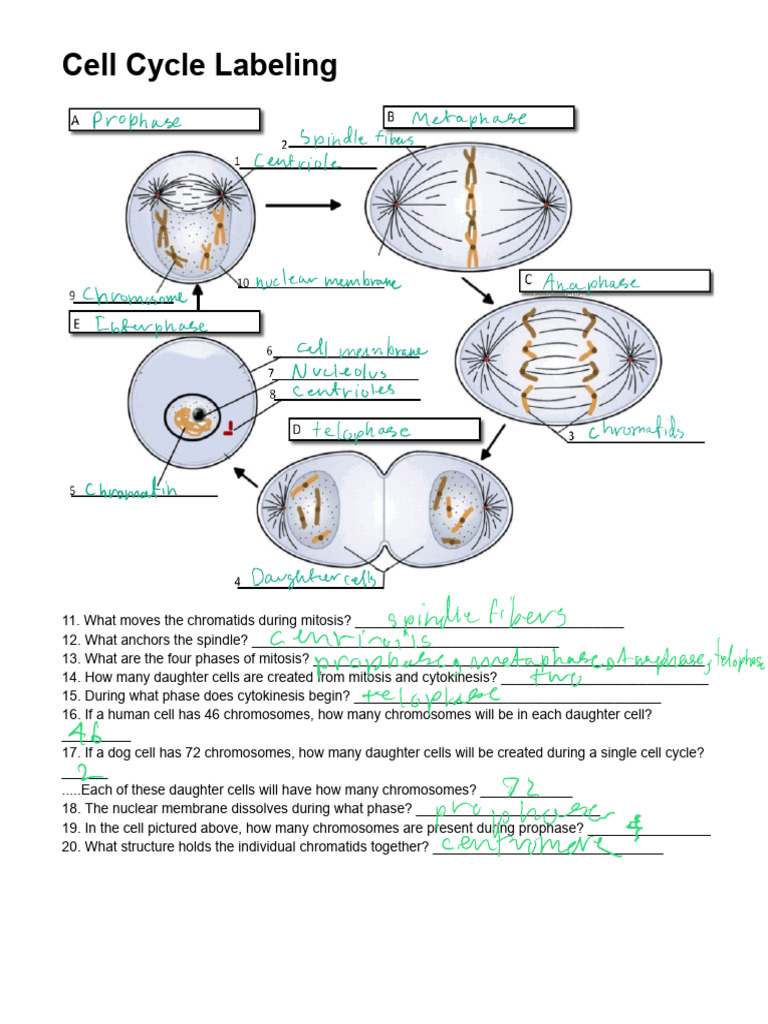 Cell Cycle Labeling
A Prophase
B Metaphase
2 Spindle fibers
1 Centriole
10 nuclear membrane
9 Chromosome
C Anaphase
E Interphase
6 cell membrane
7 Nucleolus
8 centrioles
D telophase
3 chromatids
5 Chromatin
4 Daughter cells
11. What moves the chromatids during mitosis? spindle fibers
12. What anchors the spindle?
13. What are the four phases of mitosis? prophase, metaphase, Anaphase, telophase
14. How many daughter cells are created from mitosis and cytokinesis? two
15. During what phase does cytokinesis begin? telophase
16. If a human cell has 46 chromosomes, how many chromosomes will be in each daughter cell?
46
17. If a dog cell has 72 chromosomes, how many daughter cells will be created during a single cell cycle?
2
.....Each of these daughter cells will have how many chromosomes? 72
18. The nuclear membrane dissolves during what phase? prophase
19. In the cell pictured above, how many chromosomes are present during prophase? 4
20. What structure holds the individual chromatids together? centromere